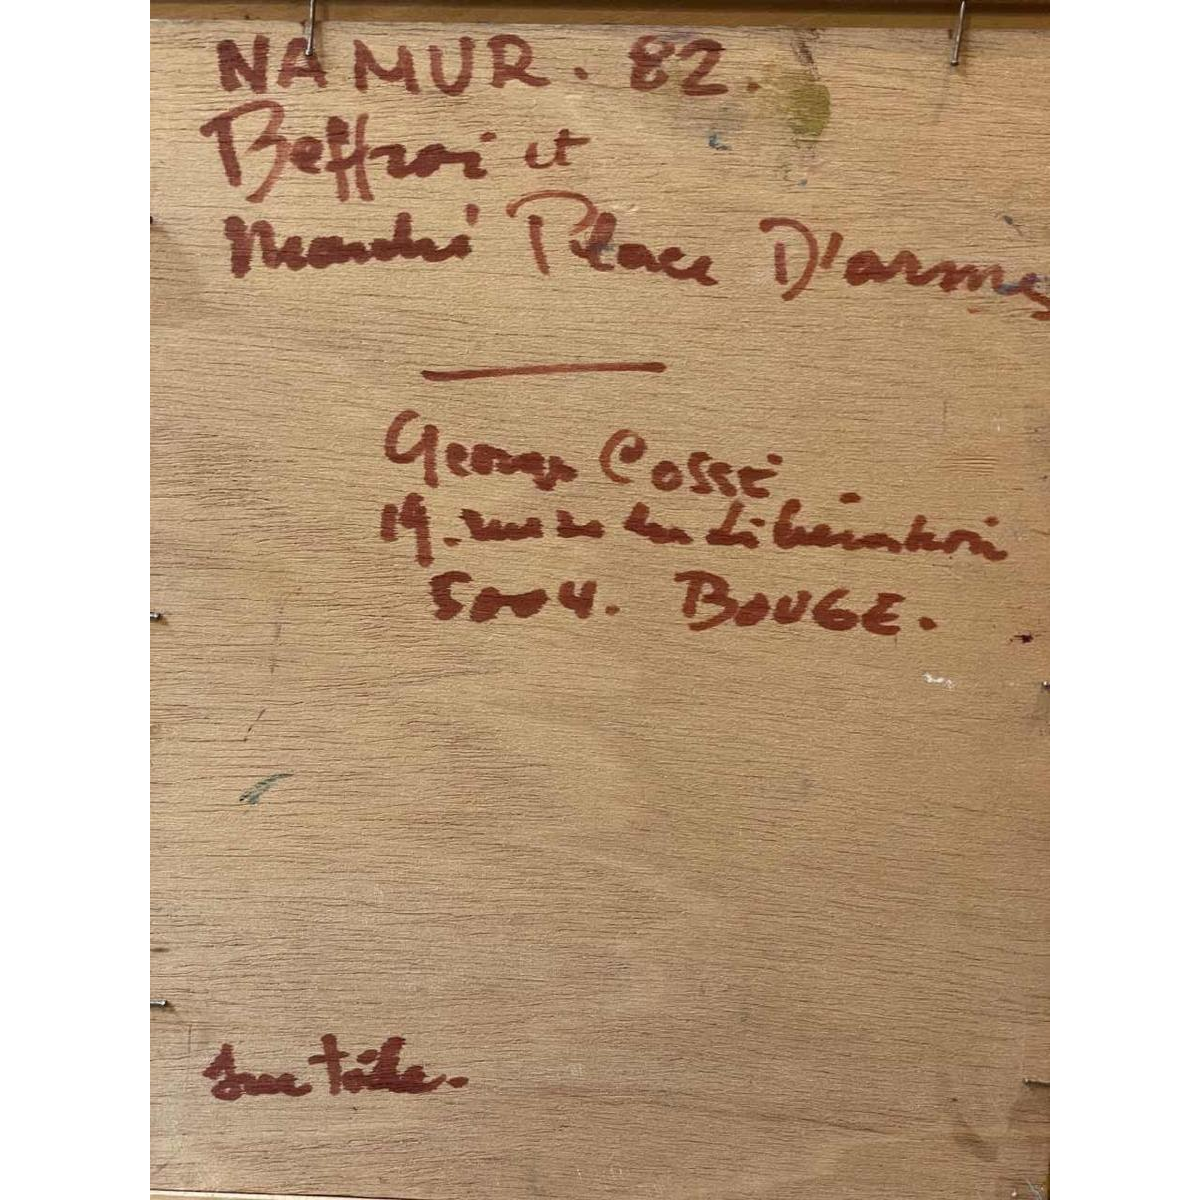 NAMUR. 82.
Beffroi et
Marché Place D'armes
Georges Cossé
19. rue de la Libération
5004. BOUGE.
sur toile.